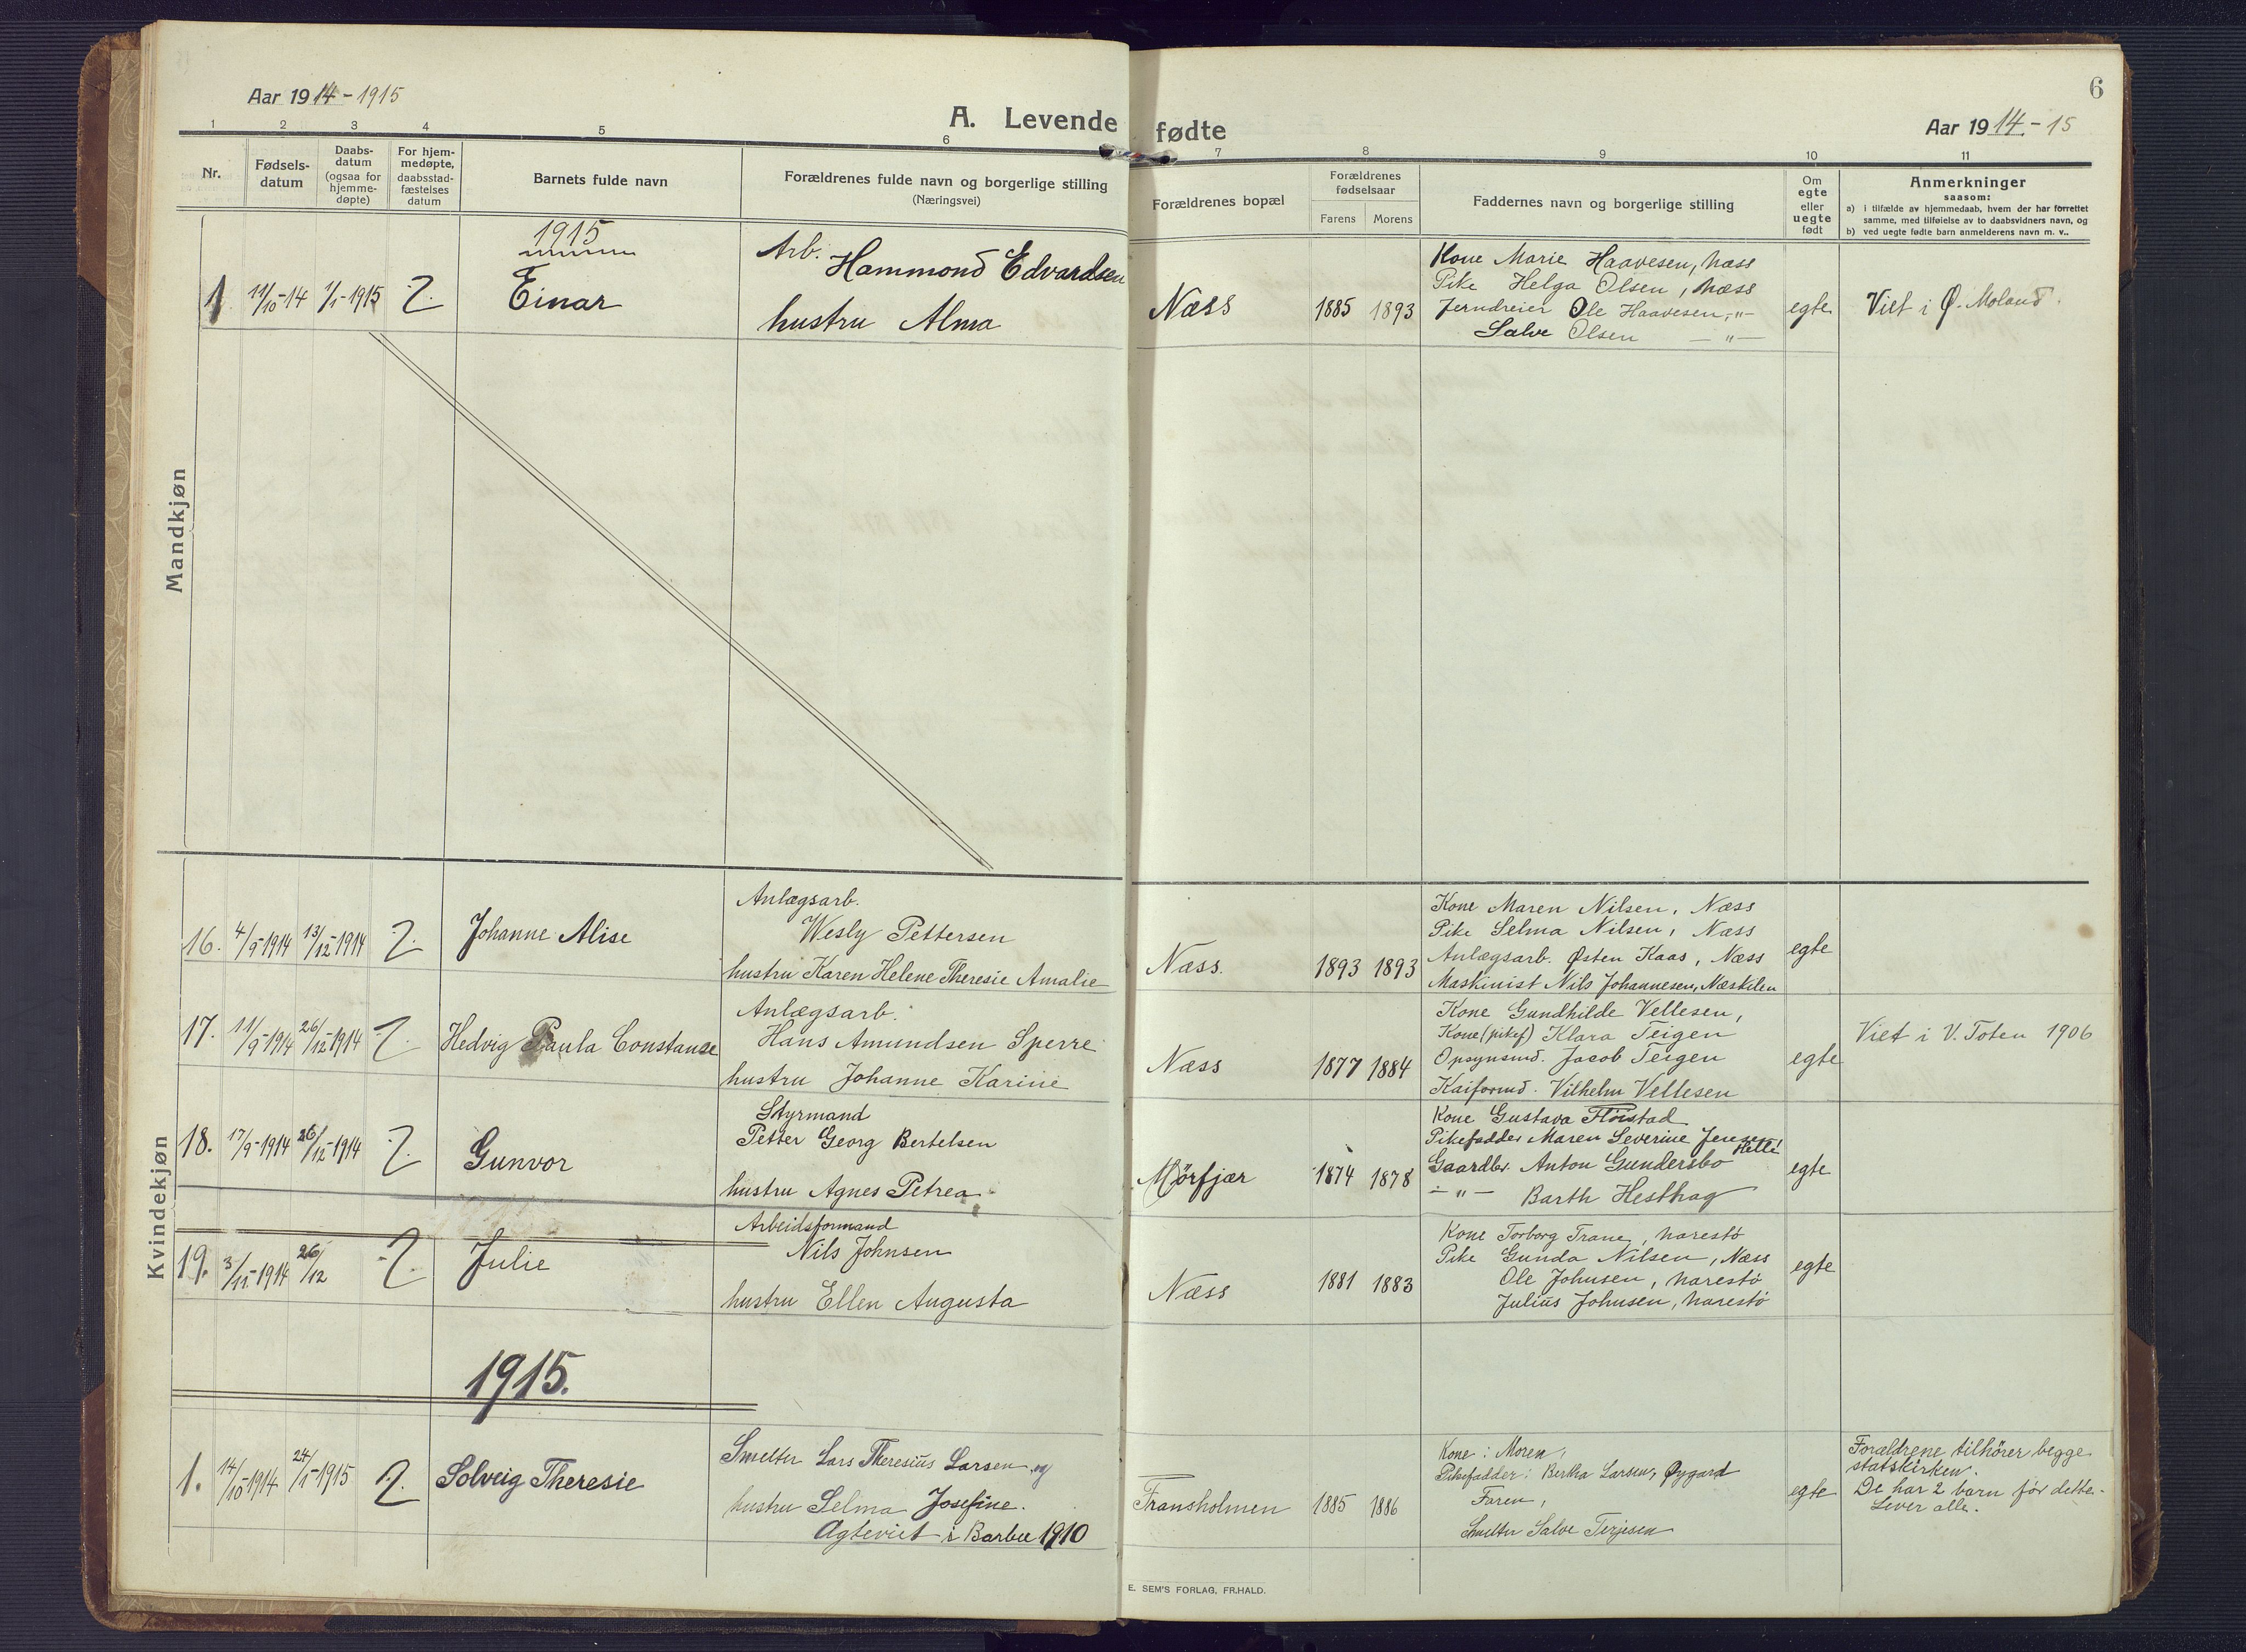 6
Aar 1914-1915
A. Levende fødte
Aar 1914.-15
1 2 3 4 5 6 7 8 9 10 11
Nr.
Fødsels-
datum
Daabs-
datum
(ogsaa for
hjemme-
døpte)
For hjem-
medøpte,
daabsstad-
fæstelses
datum
Barnets fulde navn
Forældrenes fulde navn og borgerlige stilling
(Næringsvei)
Forældrenes bopæl
Forældrenes
fødselsaar
Farens Morens
Faddernes navn og borgerlige stilling
Om
egte
eller
uegte
født
Anmerkninger
saasom:
a) i tilfælde av hjemmedaab, hvem der har forrettet
samme, med tilføielse av to daabsvidners navn, og
b) ved uegte fødte barn anmelderens navn m. v..
Mandkjøn
1915
1 11/10-14 1/1-1915
Einar
Arb. Hammond Edvardsen
hustru Alma
Næss
1885 1893
Kone Marie Haavesen, Næss
Pike Helga Olsen, Næss
Jerndreier Ole Haavesen, -"-
Salve Olsen -"-
egte
Viet i Ø. Moland.
Kvindekjøn
16. 4/9-1914 13/12-1914
Johanne Alise
Anlægsarb.
Wesly Pettersen
hustru Karen Helene Theresie Amalie
Næss.
1893 1893
Kone Maren Nilsen, Næss
Pike Selma Nilsen, Næss
Anlægsarb. Østen Kaas, Næss
Maskinist Nils Johannesen, Næskilen
egte
17. 11/9-1914 26/12-1914
Hedvig Paula Constanse
Anlægsarb.
Hans Amundsen Sperre
hustru Johanne Karine
Næss
1877 1884
Kone Gundhilde Vellesen,
Kone (pikef) Klara Teigen
Opsynsmd. Jacob Teigen
Kaiformd. Vilhelm Vellesen
egte
Viet i V. Toten 1906
18. 17/9-1914 26/12-1914
Gunvor
Styrmand
Petter Georg Bertelsen
hustru Agnes Petrea
Mörfjær
1874 1878
Kone Gustava Flöistad
Pikefadder Maren Severine Jensen
Helle
Gaardbr. Anton Gundersbo
-"- Barth Hesthag
egte
19. 3/11-1914 26/12
Julie
Arbeidsformand
Nils Johnsen
hustru Ellen Augusta
Næss
1881 1883
Kone Torborg Trane, Narestö
Pike Gunda Nilsen, Næss
Ole Johnsen, Narestö
Julius Johnsen, Narestö
egte
1915.
1. 14/10-1914 24/1-1915
Solveig Theresie
Smelter Lars Theresius Larsen og
hustru Selma Josefine.
Ægteviet i Barbu 1910
Fransholmen
1885 1886
Kone: Moren,
Pikefadder: Bertha Larsen, Øygard
Faren,
Smelter Salve Terjesen
egte
Forældrene tilhörer begge
statskirken.
De har 2 barn för dette.
Lever alle.
E. SEM'S FORLAG, FR.HALD.